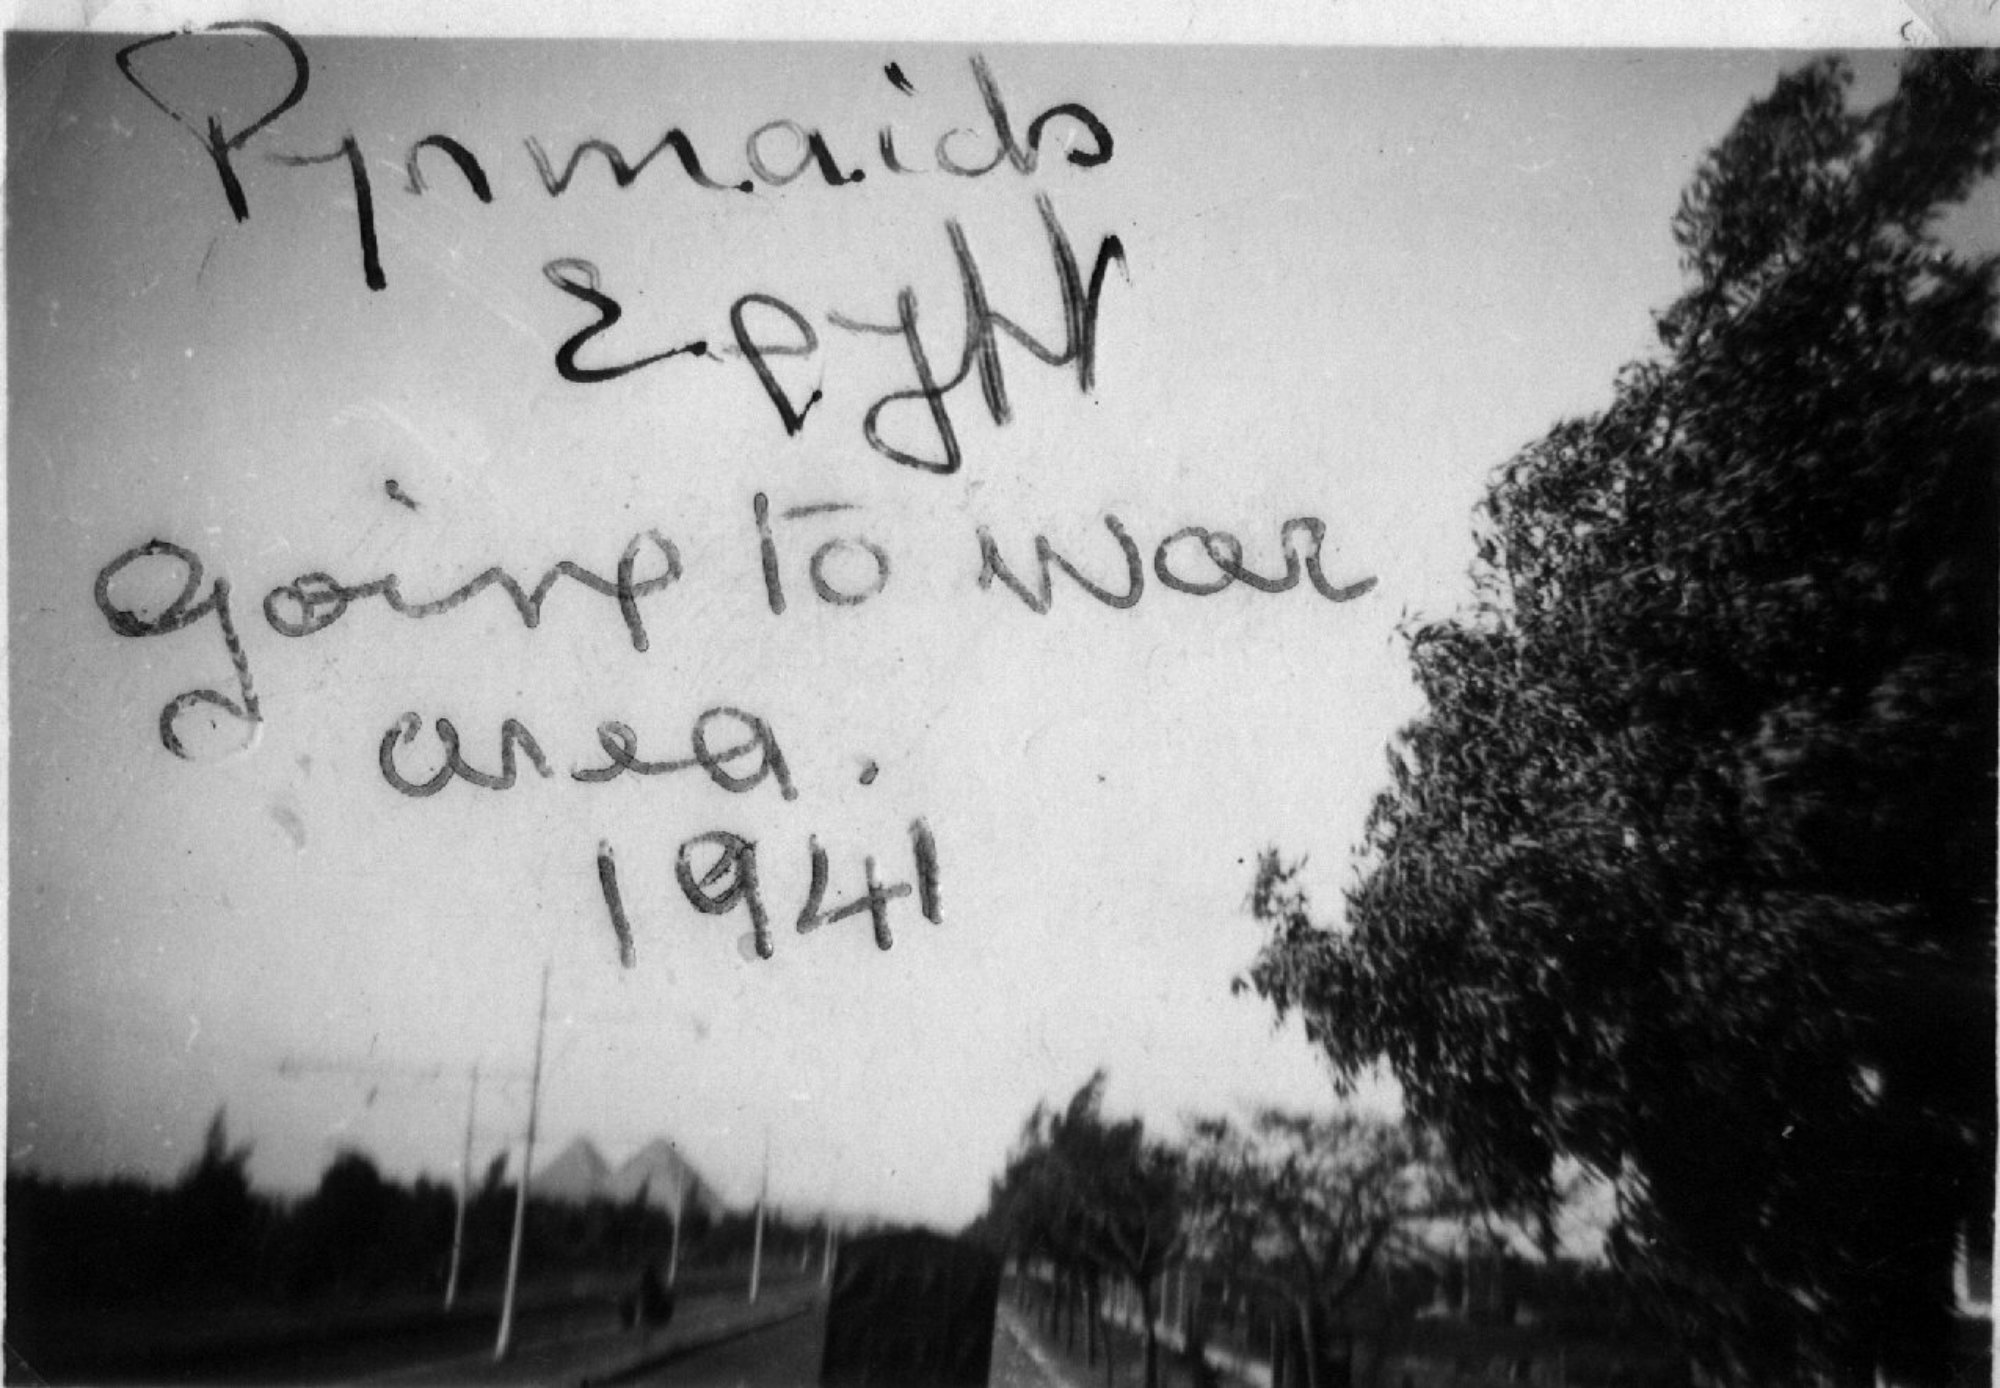 Pyrmaids
Epyht
going to war
area.
1941